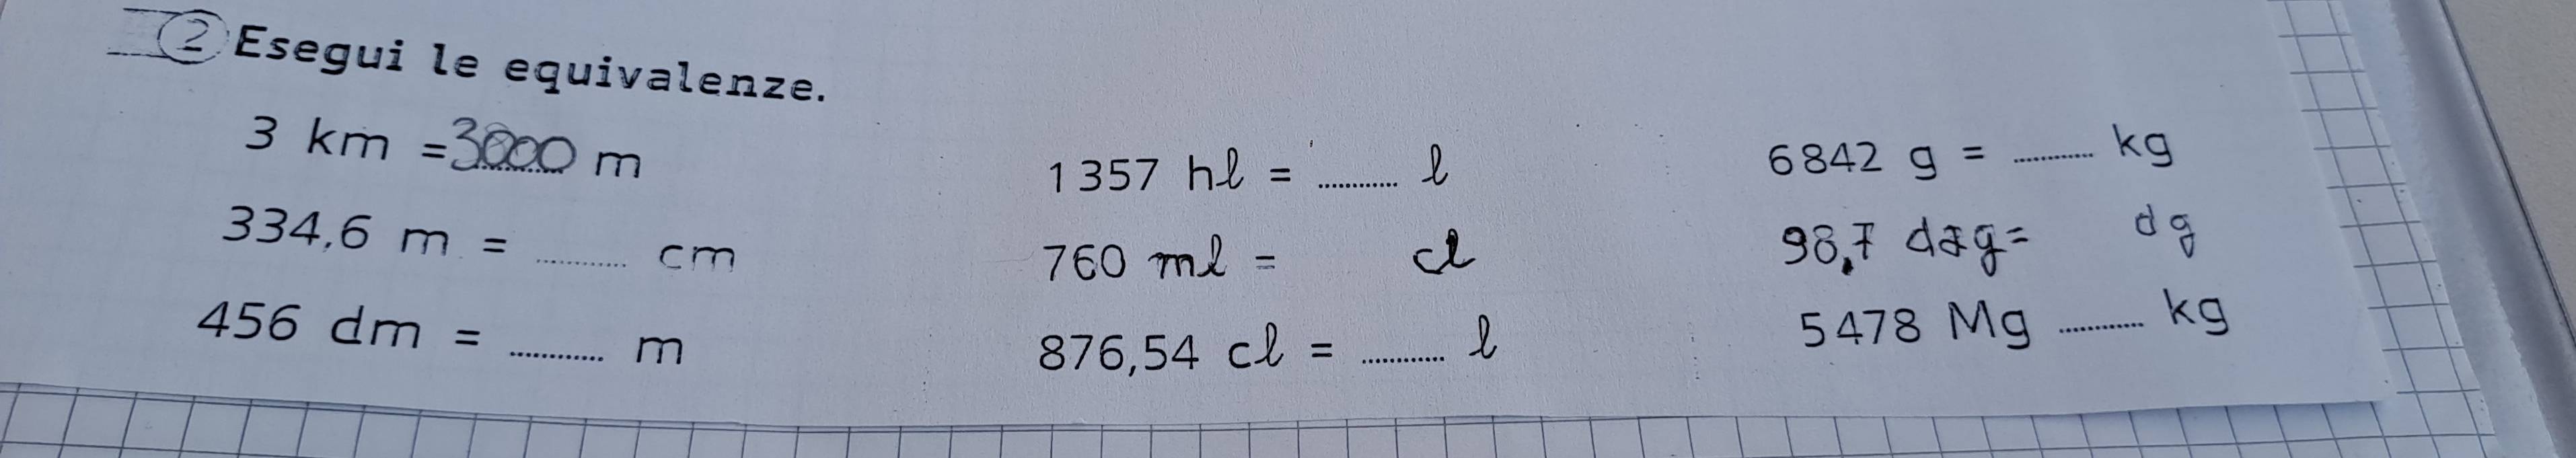 2 Esegui le equivalenze.
3 km = 3000 m
334,6 m = ............ cm
456 dm = ............ m
1357 hl = ............ l
760 ml = cl
876,54 cl = ............ l
6842 g = ............ kg
98,7 dag = dg
5478 Mg ............ kg